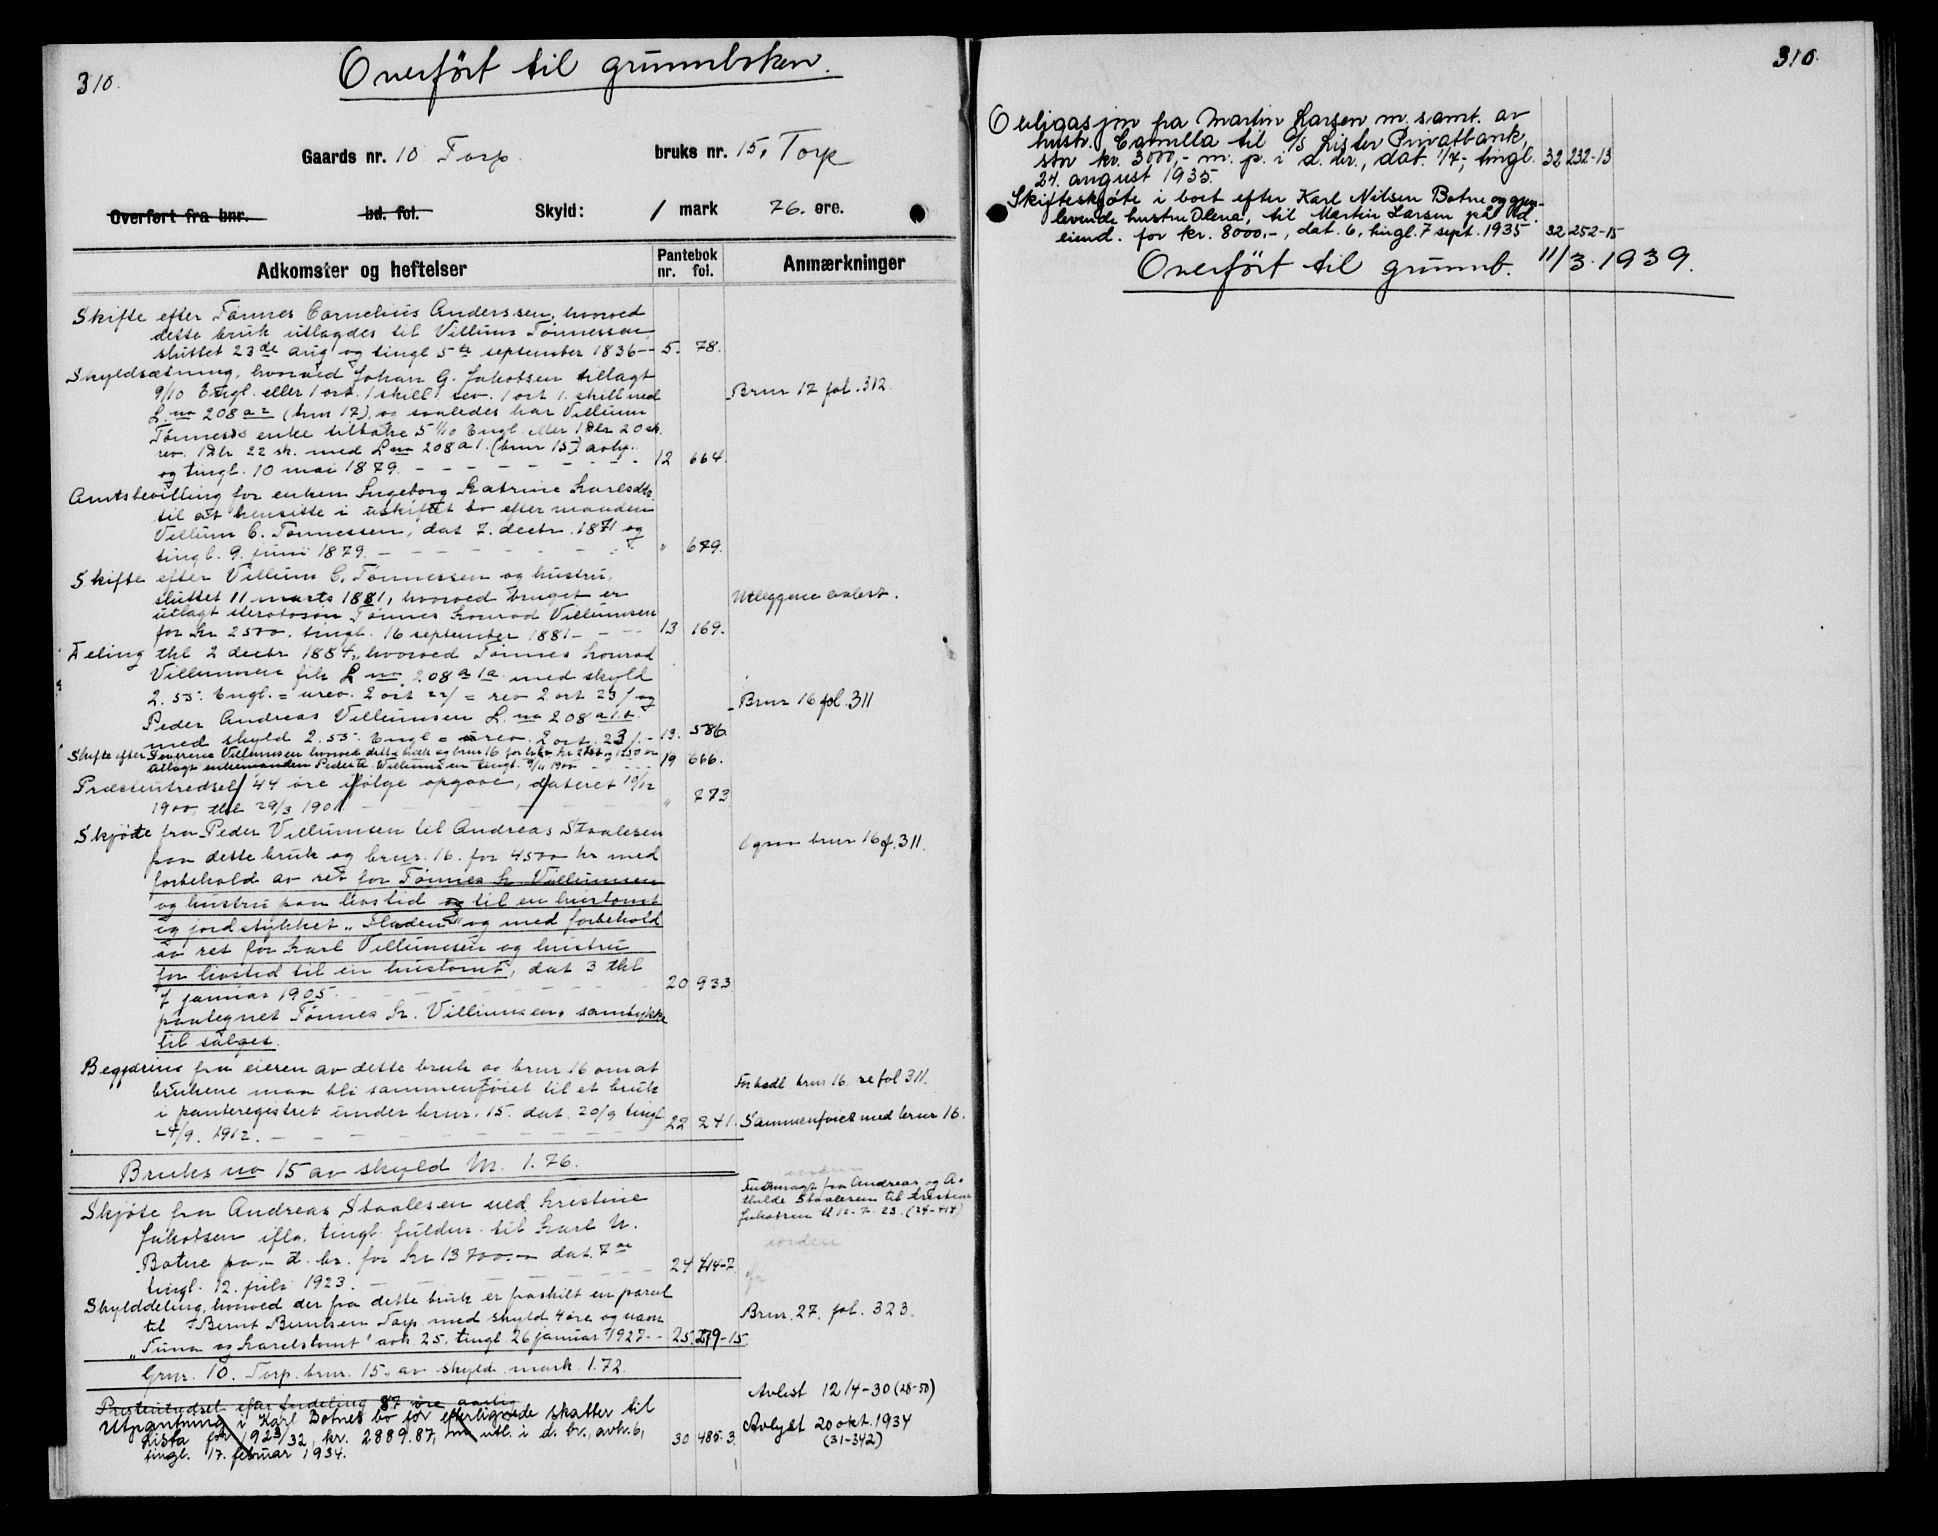 310.
Overført til grunnboken.
Gaards nr. 10 Torp. bruks nr. 15, Torp
Overført fra bnr. bd. fol. Skyld: 1 mark 76. øre.
Adkomster og heftelser Pantebok nr. fol. Anmærkninger
Skifte efter Tønnes Cornelius Anderssen, hvorved
dette bruk utlagdes til Villum Tønnessen,
sluttet 23de aug og tingl 5te september 1836 -- 5. 78.
Skyldsætning, hvorved Johan G. Jakobsen tillagt
9/10 Engl. eller 1 ort. 1 skill. rev. 1 ort 1. skill med Brnr 17 fol. 312.
L. no 208 a 2 (brnr 17), og saaledes har Villum
Tønnes's enke tilbake 5 1/10 Engl. eller 1 Dlr 20 sk.
rev. 1 Dlr 22 sk. med L no 208 a 1. (brnr 15) avhj.
og tingl. 10 mai 1879. - - - - - - - 12 664.
Amtsbevilling for enken Ingeborg Katrine Karlsdtr.
til at hensitte i uskiftet bo efter manden
Villum C. Tønnessen, dat 7. decbr. 1871 og
tingl. 9. juni 1879. - - - - - - " 679.
Skifte efter Villum C. Tønnessen og hustru,
sluttet 11 marts 1881, hvorved bruget er Utleggene avlest.
utlagt sterbosøn Tønnes Konrad Villumsen
for Kr 2500. tingl. 16 september 1881 - - - 13 169.
Deling thl 2 decbr 1884, hvorved Tønnes Konrad
Villumsen fik L no 208 a 1 a med skyld
2. 55. Engl. = urev. 2 ort 22/ = rev 2 ort 23/ og Brnr 16 fol. 311
Peder Andreas Villumsen L. no 208 a 1. b.
med skyld 2. 55. Engl = urev. 2 ort. 23/. - 13. 586.
Skifte efter Severine Villumsen hvorved dette bruk og brnr 16 for
utlagt enkemanden Peder A. Villumsen tingl. 9/11 1900 - - - 19 666.
Præsteutredsel 44 øre ifølge opgave, dateret 19/12
1900, thl 29/3 1901 - - - - - " 773
Skjøte fra Peder Villumsen til Andreas Staalesen
paa dette bruk og brnr. 16. for 4500 kr med Ogsaa brnr 16 f. 311.
forbehold av ret for Tønnes K. Villumsen
og hustru paa livstid og til en hustomt
og jordstykket "Fladen" og med forbehold
av ret for Karl Villumsen og hustru
for livstid til en hustomt, dat 3 thl
7 januar 1905. - - - - - - 20 933
paategnet Tønnes K. Villumsens samtykke
til salget.
Begjæring fra eieren av dette bruk og brnr 16 om at
brukene maa bli sammenføiet til et bruk Forhold brnr 16 se fol 311.
i panteregistret under brnr. 15. dat. 20/9 tingl 22 241. Sammenføiet med brnr 16.
24/9. 1912. - - - - - -
Bruks no 15 av skyld M. 1.76.
Skjøte fra Andreas Staalesen ved Kristine Fuldmagt fra Andreas og A-
thilde Staalesen til Kristine
Jakobsen iflg. tingl. fuldm. til Karl N. Jakobsen tl 12-7-23. (24-414)
Botne paa d. br. for kr 13700.- dat. 7de 24 414-7
tingl. 12. juli 1923. - - - - -
Skylddeling, hvorved der fra dette bruk er fraskilt en parcel
til Bernt Berntsen Torp med skyld 4 øre og navn Brnr. 27. fol. 323.
"Tuna og Karelstomt" avh 25. tingl 26 januar 1927 - - 25. 279-15.
Gnr. 10. Torp. brnr. 15. av skyld mark 1.72.
Presteutydsel efter fordeling 87 øre aarlig Avlest 12/4-30 (28-50)
Utpantning i Karl Botnes bo for efterlignede skatter til
Lista for 1923/32, kr. 2889.87, utl. i d. br., avh. 6, 30 485-3. Avlyst 20 okt. 1934
tingl. 17. februar 1934. (31-342)
310.
Obligasjon fra Martin Larsen m. samt. av
hustr. Camilla til A/S Lister Privatbank,
stor kr. 3000,- m. p. i d. br., dat. 1/7-, tingl. 32 232-13
24. august 1935.
Skifteskjøte i boet efter Karl Nilsen Botne og gjen-
levende hustru Olena, til Martin Larsen på d.
eiend. for kr. 8000.-, dat. 6, tingl. 7 sept. 1935 32 252-15
Overført til grunnb. 11/3. 1939.